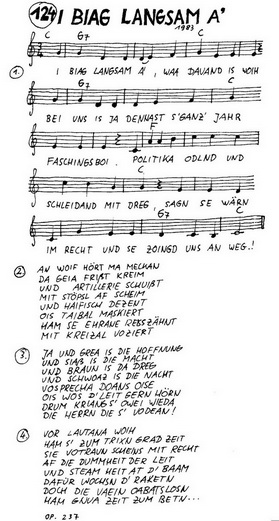 124 I BIAG LANGSAM A'
1983
C G7 C
1. I BIAG LANGSAM A', WAA DAVAND IS WOIH
G7 C
BEI UNS IS JA DENNAST S'GANZ' JAHR
F
FASCHINGSBOI. POLITIKA ODLND UND
C
SCHLEIDAND MIT DREG, SAGN SE WÄRN
G7 C
IM RECHT UND SE ZOINGD UNS AN WEG.!
2. AN WOIF HÖRT MA MECKAN
DA GEIA FRIßT KREIM
UND ARTILLERIE SCHUIßT
MIT STÖPSL AF SCHEIM
UND HAIFISCH DEZENT
OIS TAIBAL MASKIERT
HAM SE EHRANE REßZÄHNT
MIT KREIZAL VOZIERT
3. JA UND GREA IS DIE HOFFNUNG
UND SIAß IS DIE MACHT
UND BRAUN IS DA DREG
UND SCHWOAZ IS DIE NACHT
VOSPRECHA DOANS OISE
OIS WOS D'LEIT GERN HÖRN
DRUM KRIANGS' OWEI WIEDA
DIE HERRN DIE S' VODEAN!
4. VOR LAUTANA WOIH
HAM S' ZUM TRIXN GRAD ZEIT
SIE VOTRAUN SCHEINS MIT RECHT
AF DIE DUMMHEIT DER LEIT
UND STEAM HEIT AT D' BAAM
DAFÜR WOCHSN D' RAKETN
DOCH DIE VAEIN OABATSLOSN
HAM GNUA ZEIT ZUM BETN...
OP. 237